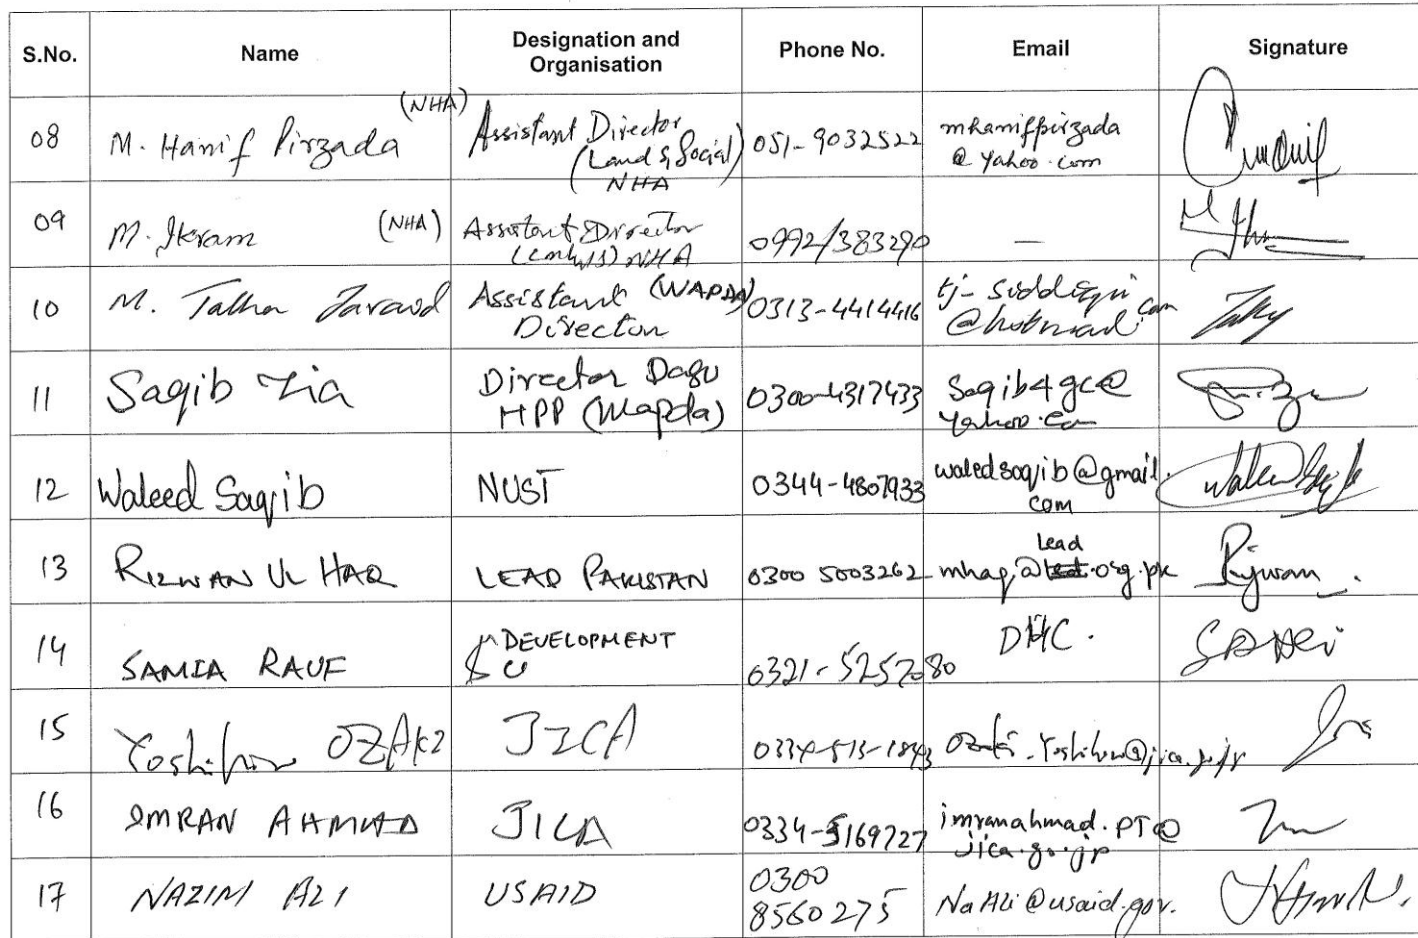 S.No. Name Designation and Organisation Phone No. Email Signature
08 M. Hanif Pirzada (NHA) Assistant Director (Land & Social) NHA 051-9032522 mhanifpirzada @yahoo.com
09 M. Ikram (NHA) Assistant Director NHA 0992/383290 —
10 M. Talha Javaid Assistant (WAPDA) Director 0313-4414416 tj-siddiqui @hotmail.com
11 Saqib Zia Director Dasu HPP (Wapda) 0300-4317433 Saqib4gc@ yahoo.com
12 Waleed Saqib NUST 0344-4807933 waledsaqib@gmail. com
13 RIZWAN UL HAQ LEAD PAKISTAN 0300 5003262 mhaq@lead.org.pk Rizwan.
14 SAMIA RAUF DEVELOPMENT 0321-5257080 DHC.
15 OZAKI JICA
16 IMRAN AHMAD JICA 0334-5169727 imranahmad.PT@ jica.go.jp
17 NAZIM ALI USAID 0300 8560275 NaAli@usaid.gov.